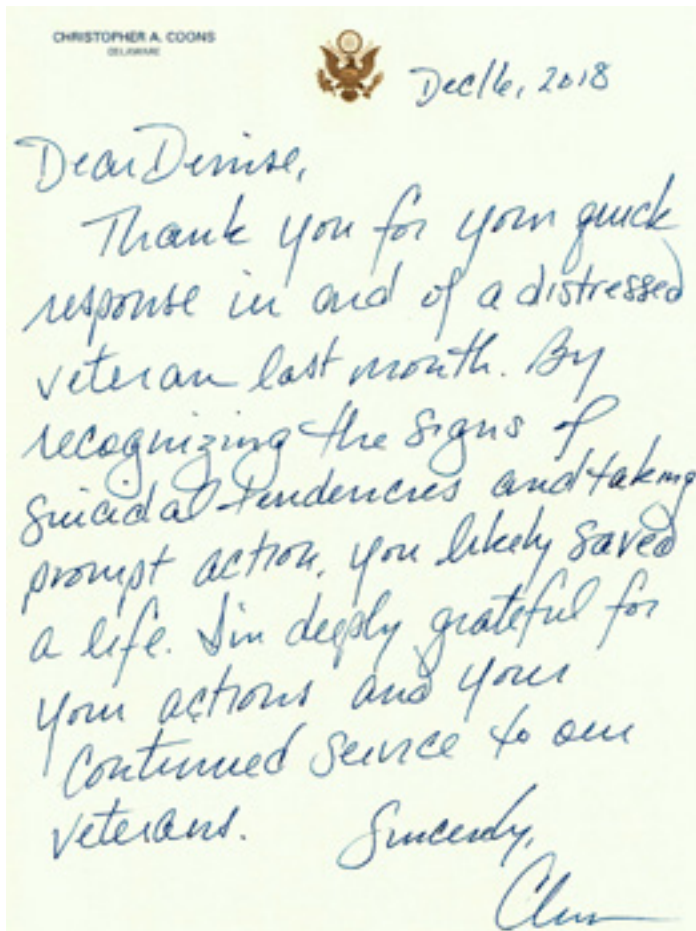 CHRISTOPHER A. COONS
DELAWARE
Dec 16, 2018
Dear Denise,
Thank you for your quick
response in aid of a distressed
veteran last month. By
recognizing the signs of
suicidal tendencies and taking
prompt action, you likely saved
a life. I'm deeply grateful for
your actions and your
continued service to our
veterans.
Sincerely,
Chris